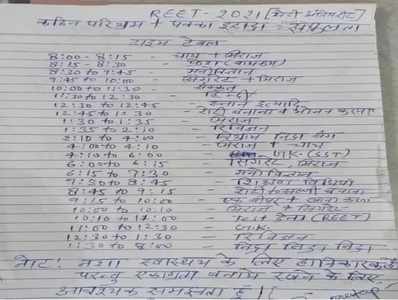 REET-2021 [
कठिन परिश्रम + पक्का इरादा = सफलता
टाइम टेबल
8:00 - 8:15 - चाय + मिराज
8:15 - 8:30 -
8:30 to 9:45 - मनोविज्ञान
9:45 to 10:00 - सिगरेट + मिराज
10:00 to 11:30 - संस्कृत
11:30 to 12:30 -
12:30 to 12:45 - स्नान इत्यादि
12:45 to 1:30 - रोटी बनाना + भोजन करना
1:30 to 1:35 - मिराज
1:35 to 2:10 - रिविजन
2:10 to 4:00 -
4:00 to 4:10 - मिराज + चाय
4:10 to 6:00 - G.K. (SST)
6:00 to 6:15 - सिगरेट मिराज
6:15 to 7:30 - मनोविज्ञान
7:30 to 8:45 - शिक्षण विधियां
8:45 to 9:15 - रोटी
9:15 to 10:00 - एक
10:00 to 10:10 - मिराज + सिगरेट
10:10 to 11:00 - Test देना (REET)
11:00 to 12:30 - G.K.
12:30 to 1:30 - रिविजन
1:30 to 8:00 - निद्रा निद्रा निद्रा
नोट! नशा स्वास्थ्य के लिए हानिकारक है
परन्तु एकाग्रता बनाये रखने के लिए
आवश्यक समझता हूँ।